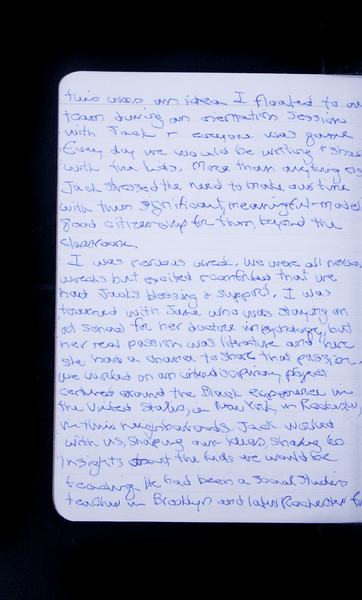 this was an idea I floated to our
team during an orientation session
with Jack & everyone was game
Every day we would be writing & shar
with the kids. More than anything els
Jack stressed the need to make our time
with them significant, meaningful - model
good citizenship for them beyond the
classroom.
I was nervous wreck. We were all nervous
wrecks but excited & comforted that we
had Jack's blessing & support. I was
teamed with Jane who was studying
at school for her doctorate in psychology, but
her real passion was literature and here
she has a chance to share that passion.
We worked on an interdisciplinary project
centered around the Black experience in
the United States, in New York, in Rochester,
in this neighborhoods. Jack worked
with us, shaping our ideas, sharing
insights about the kids we would be
teaching. He had been a social studies
teacher in Brooklyn and later Rochester